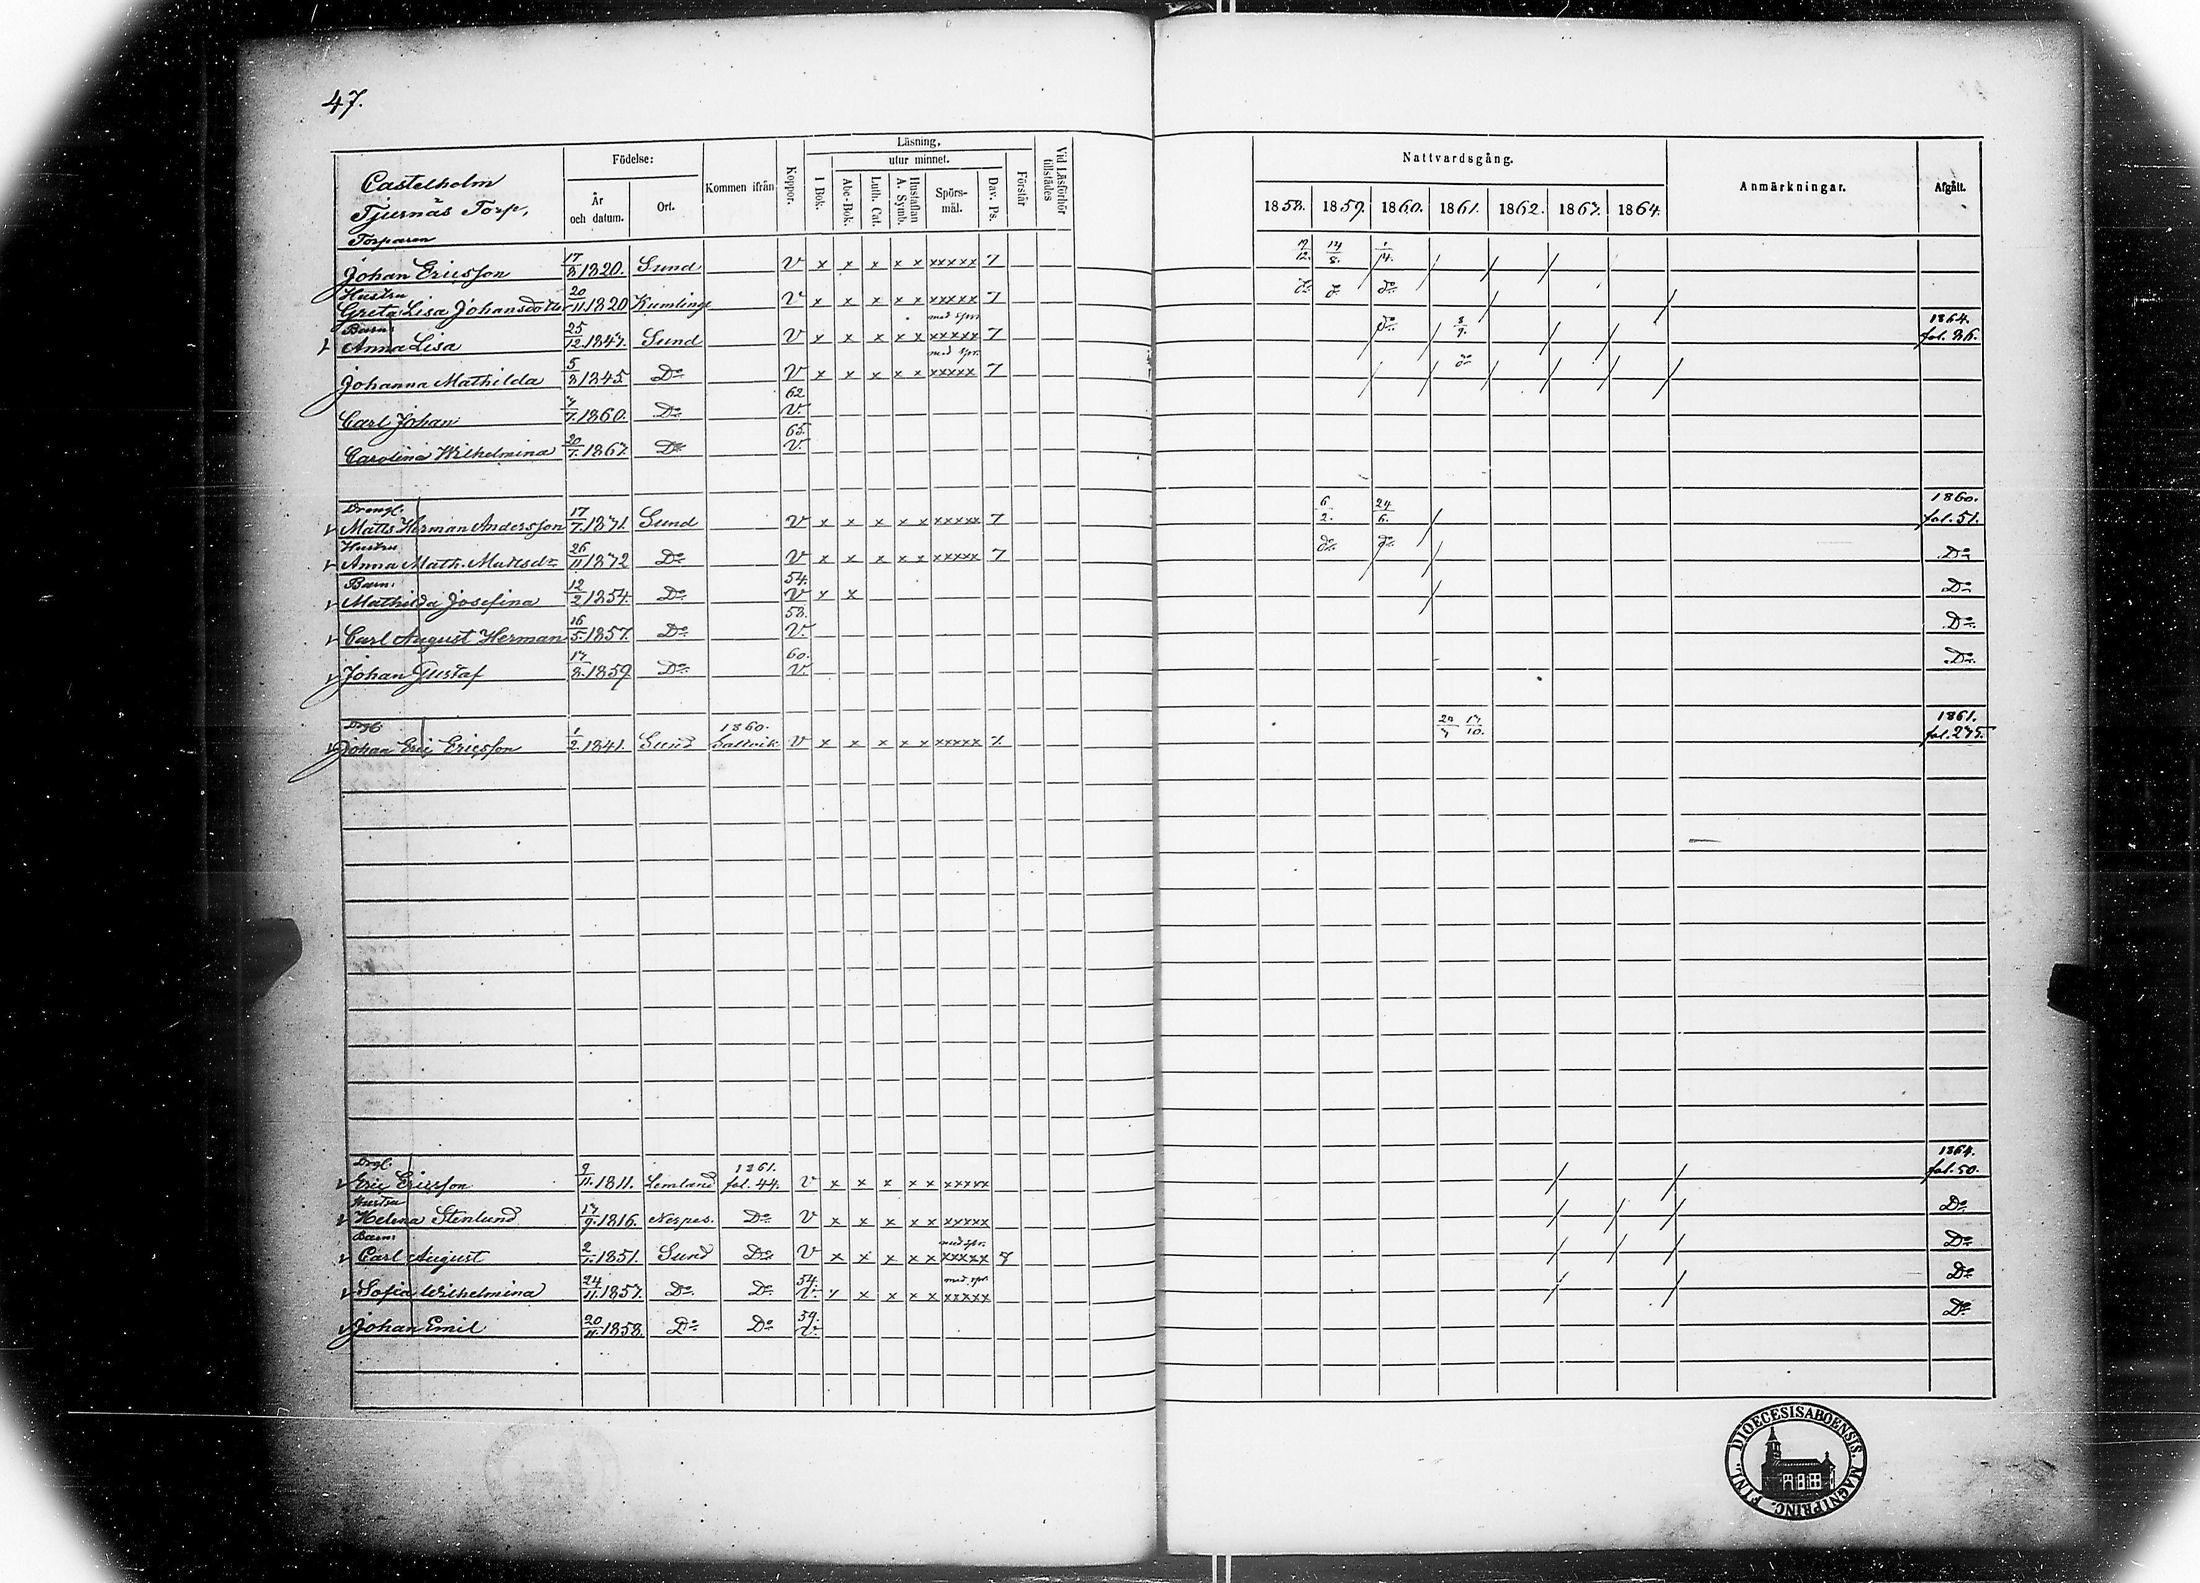 47.
Castelholm
Tjernäs Torp,
Födelse:
År och datum.
Ort.
Kommen ifrån
Koppor.
Läsning,
utur minnet.
I Bok.
Abc-Bok.
Luth. Cat.
Hustaflan A. Symb.
Spörs-mål.
Dav. Ps.
Förstår
Vid Läsförhör tillstädes
Nattvardsgång.
1858. 1859. 1860. 1861. 1862. 1863. 1864.
Anmärkningar.
Afgått.
Torparen
Johan Ericsson 17/3 1820. Sund V x x x x x xxxxx 7 14/8.
Hustru
Greta Lisa Johansdotter 20/11 1820 Kumlinge V x x x x x xxxxx 7 do do do
Barn: med spr.
Anna Lisa 25/12 1843. Sund V x x x x x xxxxx 7 do 1864. fol. 26.
med spr.
Johanna Mathilda 5/3 1845 Do V x x x x x xxxxx 7 do
62
Carl Johan 1860. Do V.
65.
Carolina Wilhelmina 20/7. 1863. Do V.
Drengl.
Matts Herman Andersson 17/7. 1831. Sund V x x x x x xxxxx 7 6/2. 24/6. 1860. fol. 51.
Hustru
Anna Math. Mattsdr 26/11 1832 Do V x x x x x xxxxx 7 do do Do
Barn: 54.
Mathilda Josefina 12/2 1854. Do V x x Do
58.
Carl August Herman 16/5. 1857. Do V. Do
60.
Johan Gustaf 1859. Do V. Do
Drgl. 1860.
Johan Eric Ericsson 1/2. 1841. Sund Saltvik V x x x x x xxxxx 7. 1861. fol. 275.
Drgl. 1861.
Eric Ericsson 9/11. 1811. Lemland fol. 44. V x x x x x xxxxx 1864. fol. 50.
Hustru
Helena Stenlund 1816. Nerpes. Do V x x x x x xxxxx Do
Barn: med spr.
Carl August 2/1. 1851. Sund Do V x x x x x xxxxx 8 Do
54. med spr.
Sofia Wilhelmina 24/11. 1853. Do Do V. x x x x x xxxxx Do
59.
Johan Emil 20/11. 1858. Do Do V. Do
DIOECESIS ABOENSIS. MAGNI PRINC. FINL.